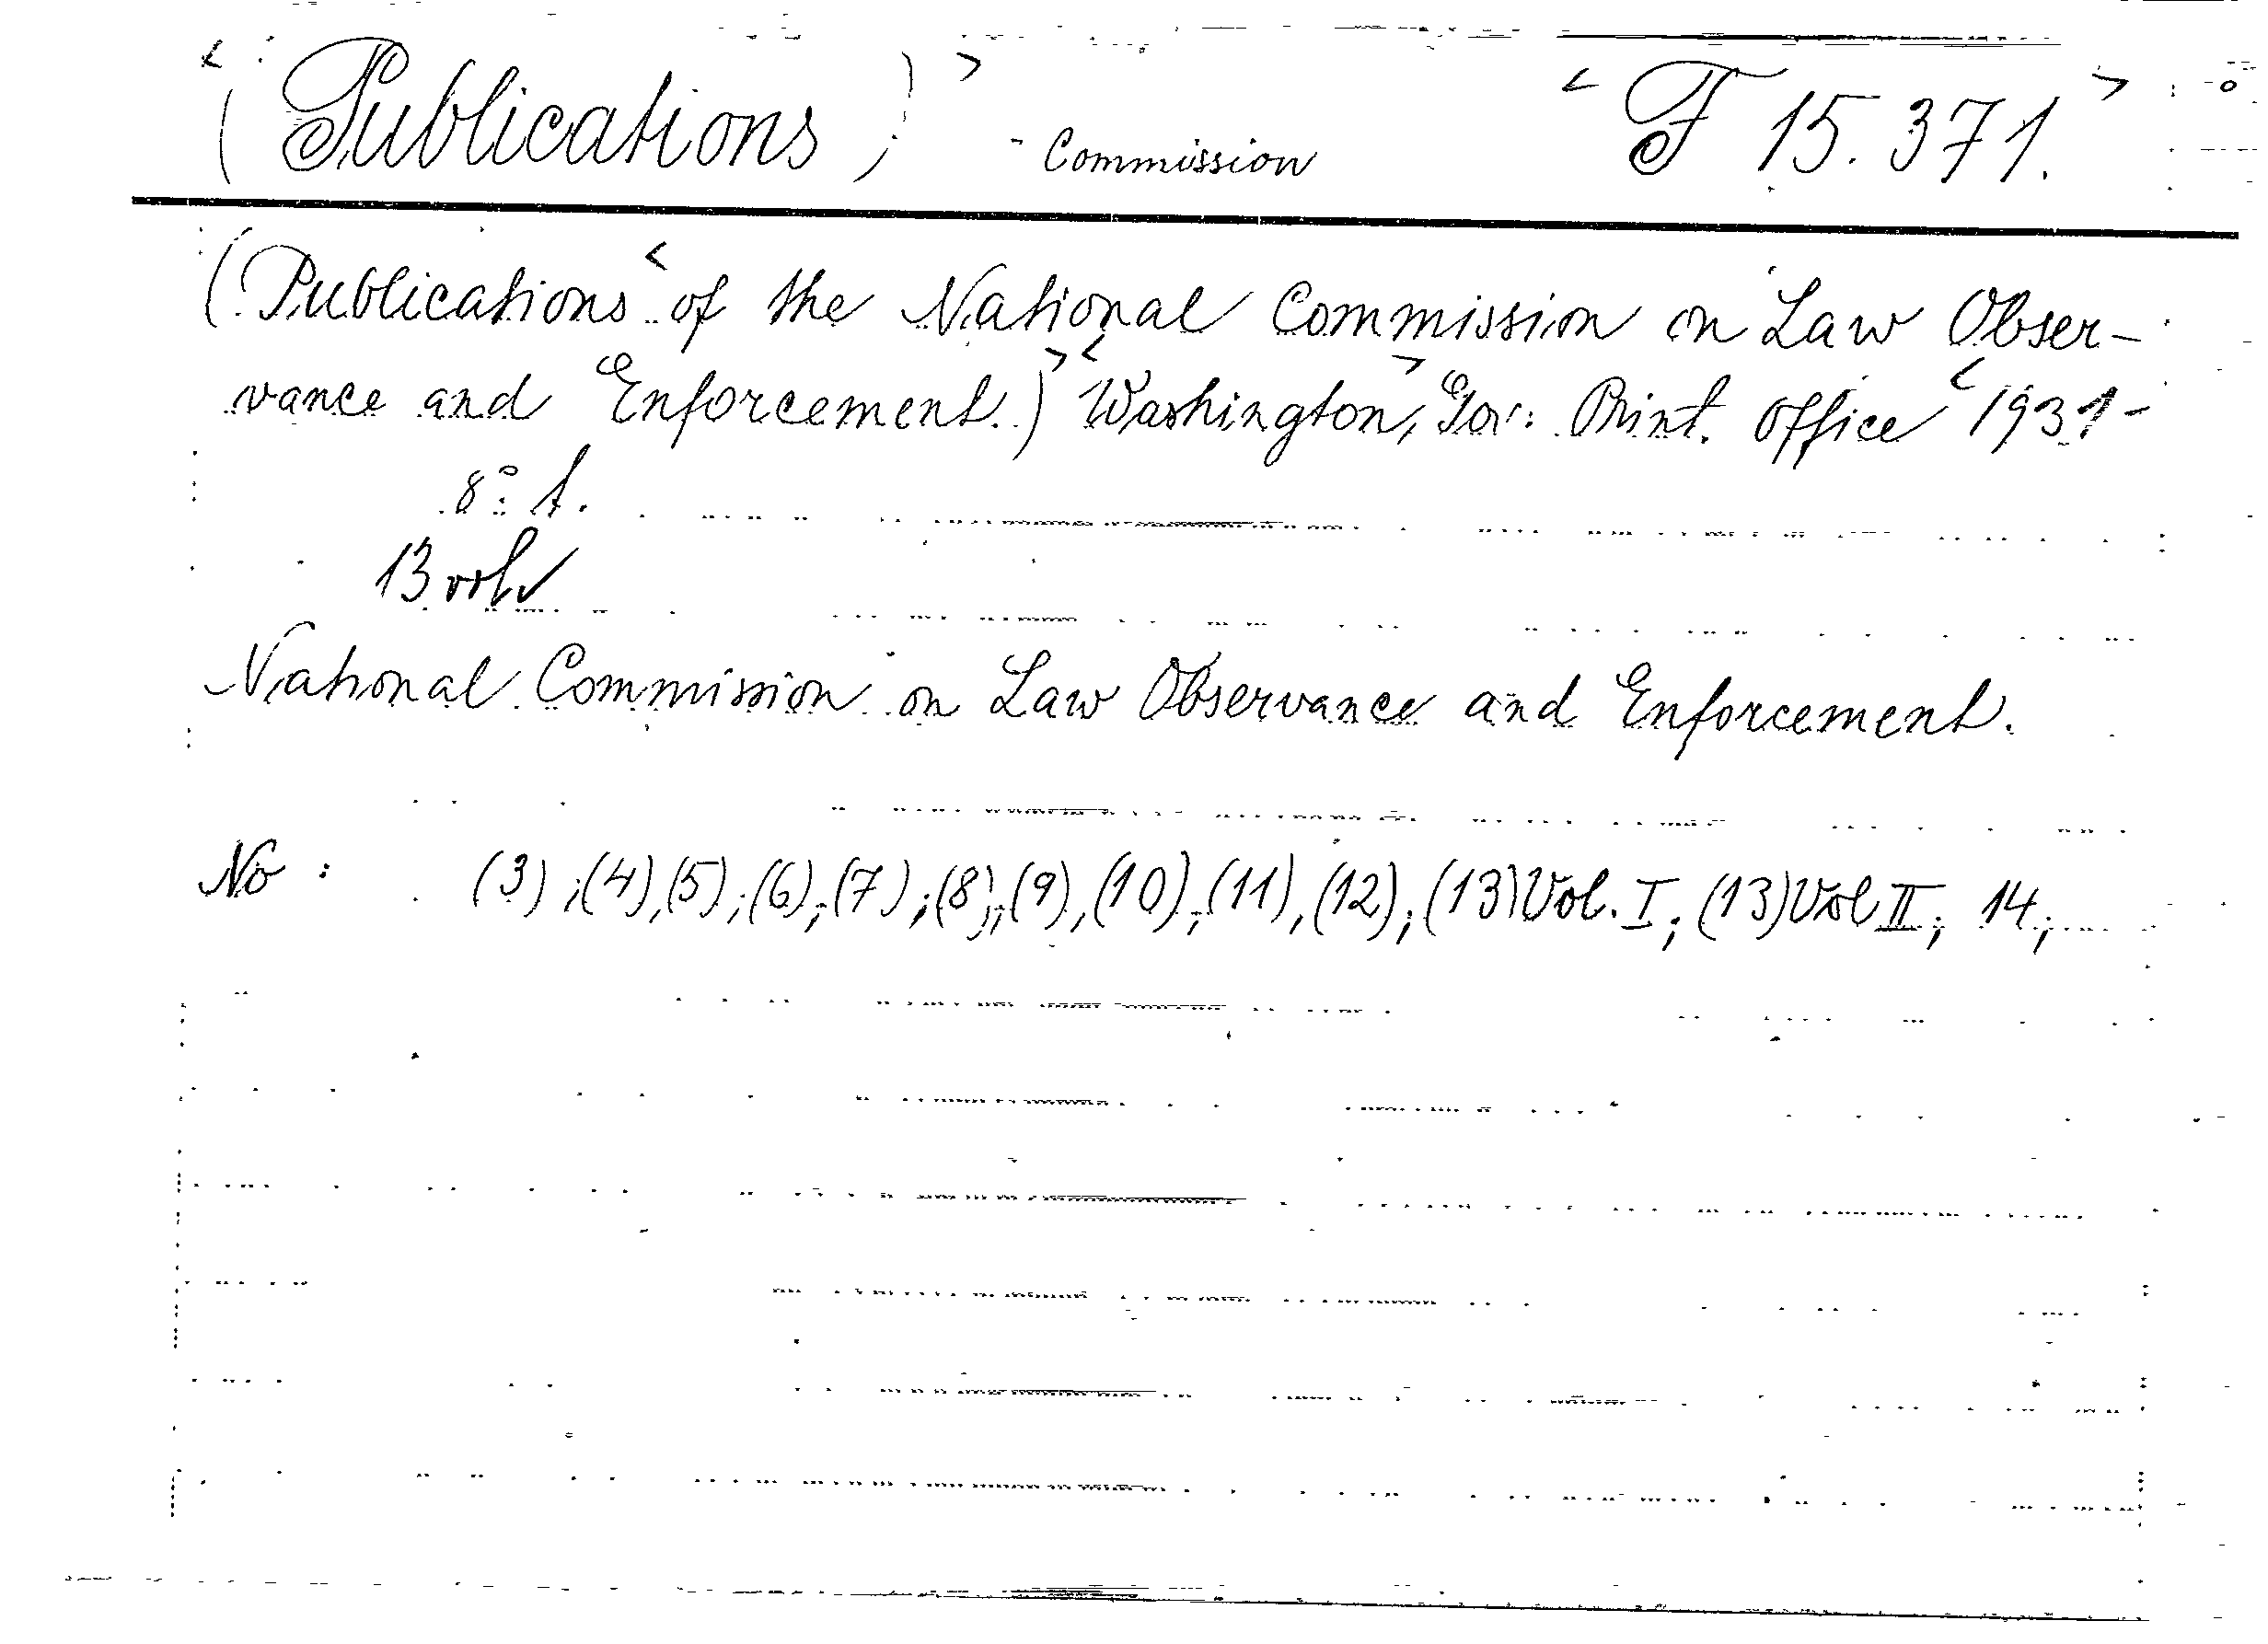 <(Publications)> - Commission <F 15.371.>
(Publications <of the National Commission on Law Obser-
vance and Enforcement.)> <Washington>, Gov: Print. Office <1931-
8° t.
13 vol
National Commission on Law Observance and Enforcement.
No : (3);(4),(5);(6);(7);(8);(9),(10);(11),(12);(13)Vol. I; (13)Vol II; 14;